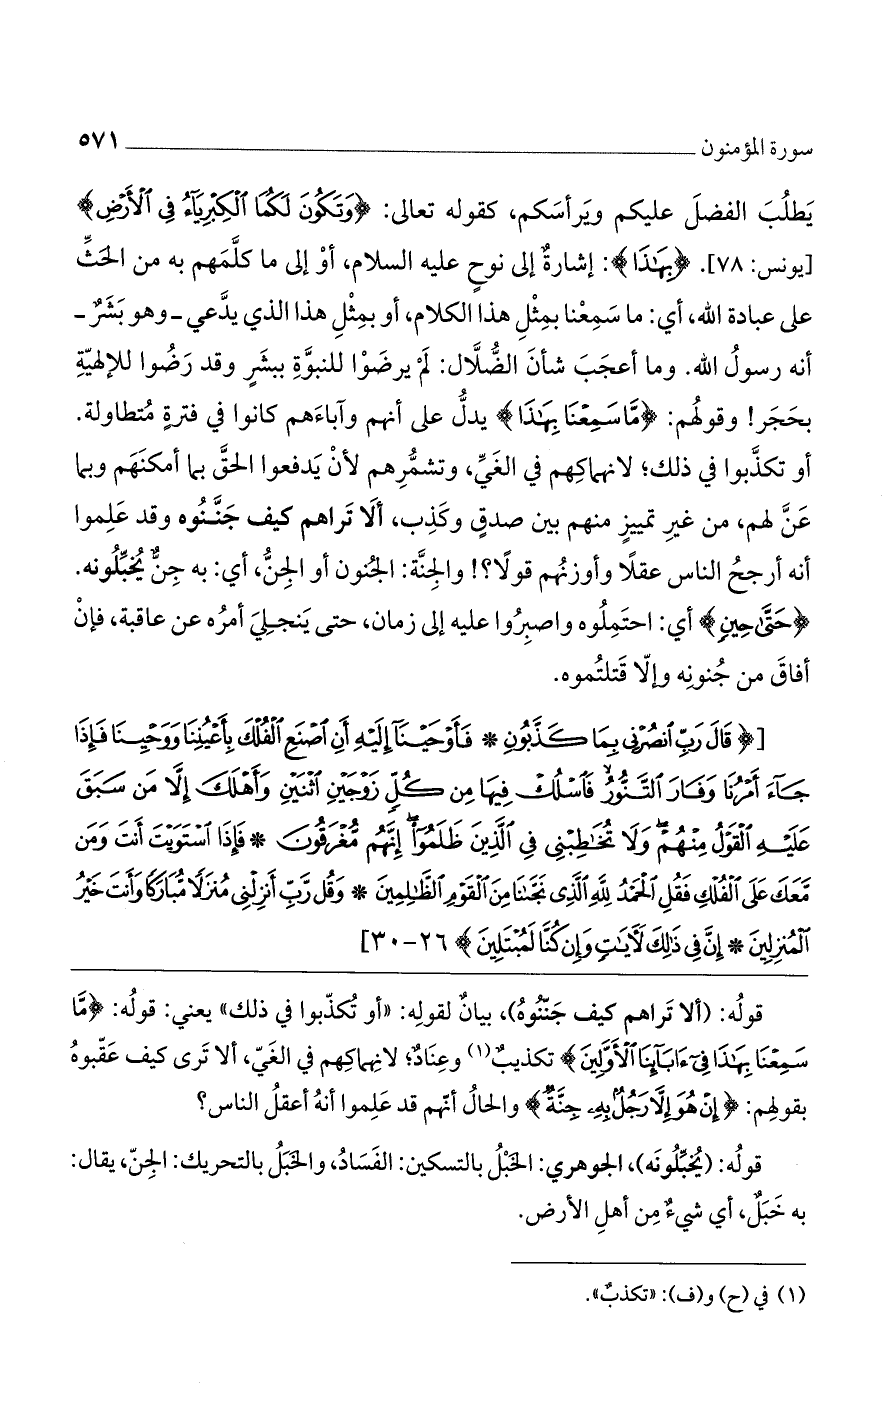 سورة المؤمنون ــــــــــــــــــــ ٥٧١
يَطلُبَ الفضلَ عليكم ويَرأسَكم، كقوله تعالى: ﴿وَتَكُونَ لَكُمَا ٱلْكِبْرِيَآءُ فِي ٱلْأَرْضِ﴾
[يونس: ٧٨]. ﴿بِهَٰذَا﴾: إشارةٌ إلى نوحٍ عليه السلام، أوْ إلى ما كلَّمَهم به من الحَثِّ
على عبادة الله، أي: ما سَمِعْنا بمِثْلِ هذا الكلام، أو بمِثْلِ هذا الذي يدَّعي ـ وهو بَشَرٌ ـ
أنه رسولُ الله. وما أعجَبَ شأنَ الضُّلَّال: لَمْ يرضَوْا للنبوَّةِ ببشَرٍ وقد رَضُوا للإلهيّةِ
بحَجَر! وقولُهم: ﴿مَّا سَمِعْنَا بِهَٰذَا﴾ يدلُّ على أنهم وآباءَهم كانوا في فترةٍ مُتطاولة.
أو تكذَّبوا في ذلك؛ لانهماكِهم في الغَيِّ، وتشمُّرِهم لأنْ يَدفعوا الحقَّ بما أمكنَهَم وبما
عَنَّ لهم، من غيرِ تمييزٍ منهم بين صدقٍ وكَذِب، ألَا تَراهم كيف جَنَّنُوه وقد عَلِموا
أنه أرجحُ الناس عقلًا وأوزنُهم قولًا؟! والجِنَّة: الجُنون أو الجِنُّ، أي: به جِنٌّ يُخبِّلُونه.
﴿حَتَّىٰ حِينٍ﴾ أي: احتَمِلُوه واصبِرُوا عليه إلى زمان، حتى يَنجليَ أمرُه عن عاقبة، فإنْ
أفاقَ من جُنونِه وإلّا قَتلتُموه.
[﴿قَالَ رَبِّ ٱنصُرْنِي بِمَا كَذَّبُونِ * فَأَوْحَيْنَآ إِلَيْهِ أَنِ ٱصْنَعِ ٱلْفُلْكَ بِأَعْيُنِنَا وَوَحْيِنَا فَإِذَا
جَآءَ أَمْرُنَا وَفَارَ ٱلتَّنُّورُ ۙ فَٱسْلُكْ فِيهَا مِن كُلٍّ زَوْجَيْنِ ٱثْنَيْنِ وَأَهْلَكَ إِلَّا مَن سَبَقَ
عَلَيْهِ ٱلْقَوْلُ مِنْهُمْ ۖ وَلَا تُخَٰطِبْنِي فِي ٱلَّذِينَ ظَلَمُوٓا۟ ۖ إِنَّهُم مُّغْرَقُونَ * فَإِذَا ٱسْتَوَيْتَ أَنتَ وَمَن
مَّعَكَ عَلَى ٱلْفُلْكِ فَقُلِ ٱلْحَمْدُ لِلَّهِ ٱلَّذِي نَجَّىٰنَا مِنَ ٱلْقَوْمِ ٱلظَّٰلِمِينَ * وَقُل رَّبِّ أَنزِلْنِي مُنزَلًا مُّبَارَكًا وَأَنتَ خَيْرُ
ٱلْمُنزِلِينَ * إِنَّ فِي ذَٰلِكَ لَءَايَٰتٍ وَإِن كُنَّا لَمُبْتَلِينَ﴾ ٢٦-٣٠]
قولُه: (ألا تَراهم كيف جَنّنُوهُ)، بيانٌ لقولِه: «أو تُكذّبوا في ذلك» يعني: قولُه: ﴿مَّا
سَمِعْنَا بِهَٰذَا فِيٓ ءَابَآئِنَا ٱلْأَوَّلِينَ﴾ تكذيبٌ(١) وعِنَادٌ؛ لانهماكِهم في الغَيّ، ألا تَرى كيف عَقّبوهُ
بقولِهم: ﴿إِنْ هُوَ إِلَّا رَجُلٌۢ بِهِۦ جِنَّةٌ﴾ والحالُ أنّهم قد عَلِموا أنهُ أعقلُ الناس؟
قولُه: (يُخبِّلُونَه)، الجوهري: الخَبْلُ بالتسكين: الفَسَادُ، والخَبَلُ بالتحريك: الجِنّ، يقال:
به خَبَلٌ، أي شيءٌ مِن أهلِ الأرض.
(١) في (ح) و(ف): «تكذبٌ».